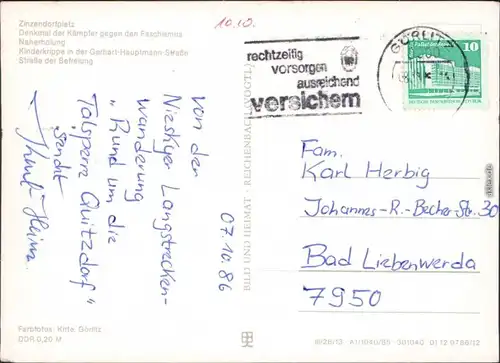 Zinzendorfplatz
Denkmal der Kämpfer gegen den Faschismus
Naherholung
Kinderkrippe in der Gerhart-Hauptmann-Straße
Straße der Befreiung
10.10.
rechtzeitig
vorsorgen
ausreichend
versichern
GÖRLITZ
10
07.10.86
von der
Nieskyer Langstrecken-
wanderung
"Rund um die
Talsperre Quitzdorf"
sendet
Heinz.
BILD UND HEIMAT REICHENBACH (VOGTL)
Fam.
Karl Herbig
Johannes-R.-Becher-Str. 30
Bad Liebenwerda
7950
Farbfotos: Kitte, Görlitz
DDR 0,20 M
A1/1040/85 301040 01 12 0786/12